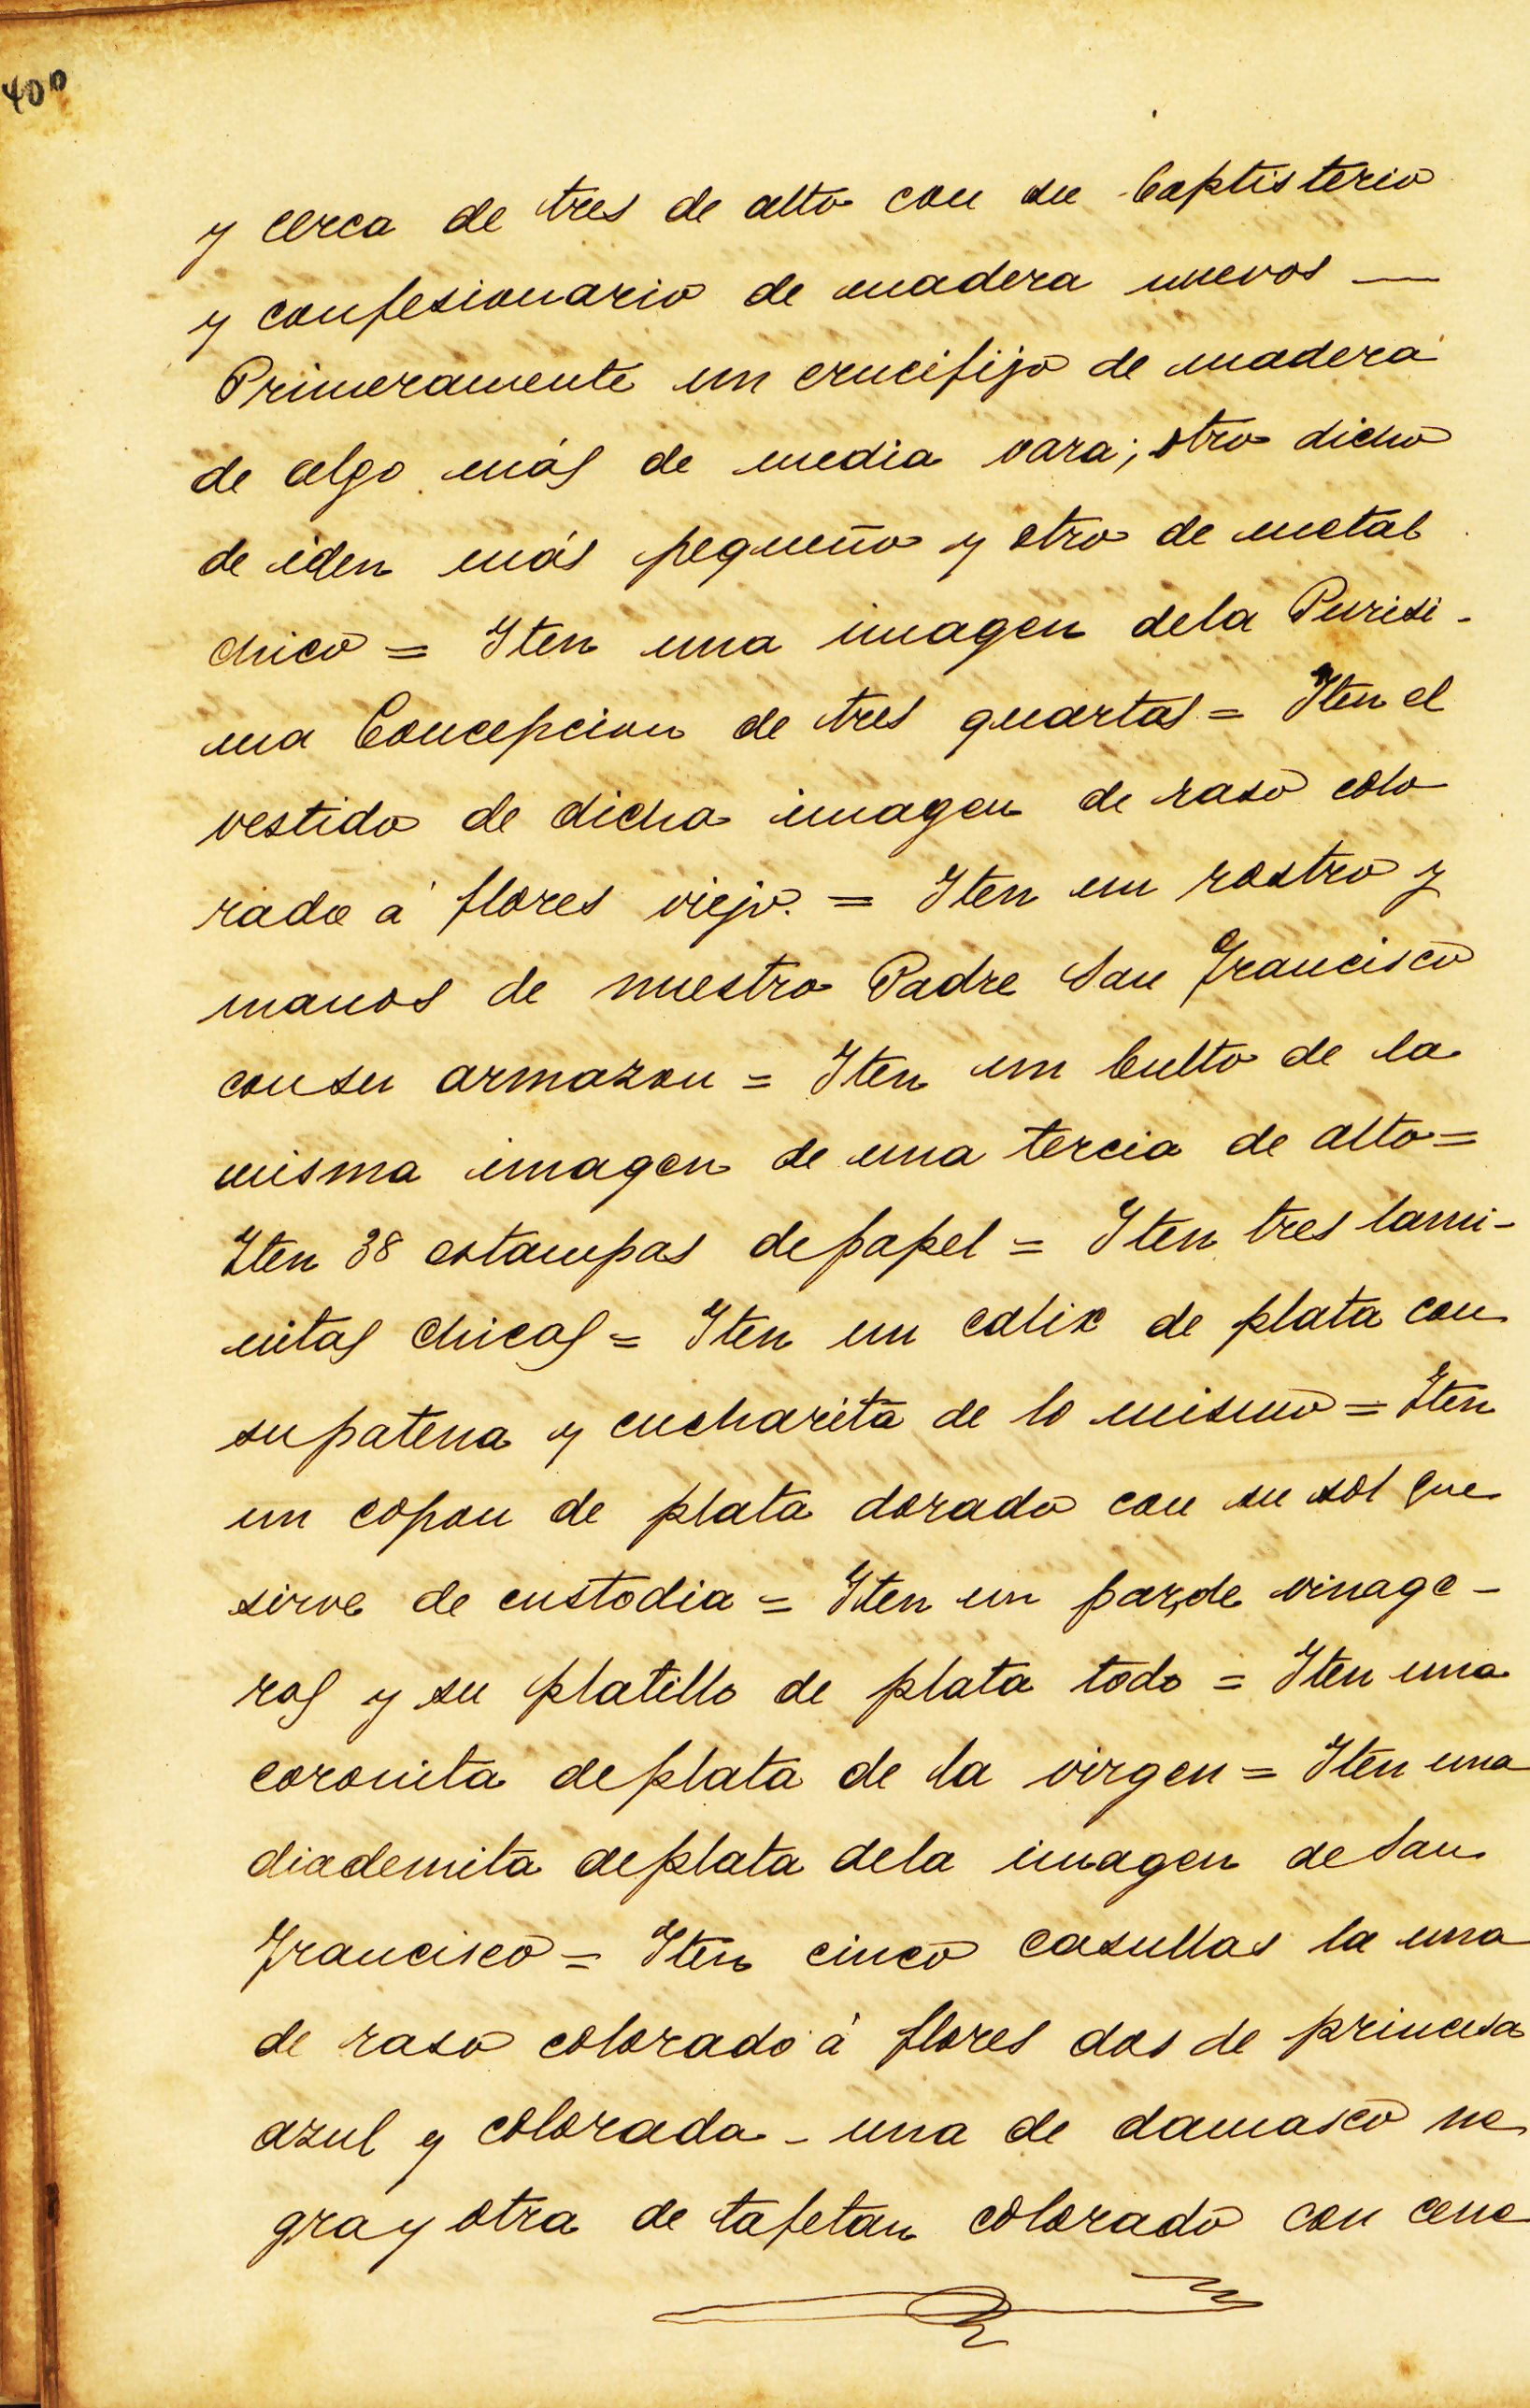 400
y cerca de tres de alto con su baptisterio
y confesionario de madera nuevos —
Primeramente un crucifijo de madera
de algo más de media vara; otro dicho
de iden más pequeño y otro de metal
chico = Iten una imagen dela Purisi-
ma Concepcion de tres quartas = Iten el
vestido de dicha imagen de raso colo
rado á flores viejo. = Iten un rostro y
manos de nuestro Padre San Francisco
con su armazon = Iten un bulto de la
misma imagen de una tercia de alto =
Iten 38 estampas de papel = Iten tres lami-
nitas chicas = Iten un calix de plata con
su patena y cucharita de lo mismo = Iten
un copon de plata dorado con su sol que
sirve de custodia = Iten un par de vinage-
ras y su platillo de plata todo = Iten una
coronita de plata de la virgen = Iten una
diademita de plata dela imagen de San
Francisco = Iten cinco casullas la una
de raso colorado à flores dos de princesa
azul y colorada - una de damasco ne
gra y otra de tafetan colorado con cene